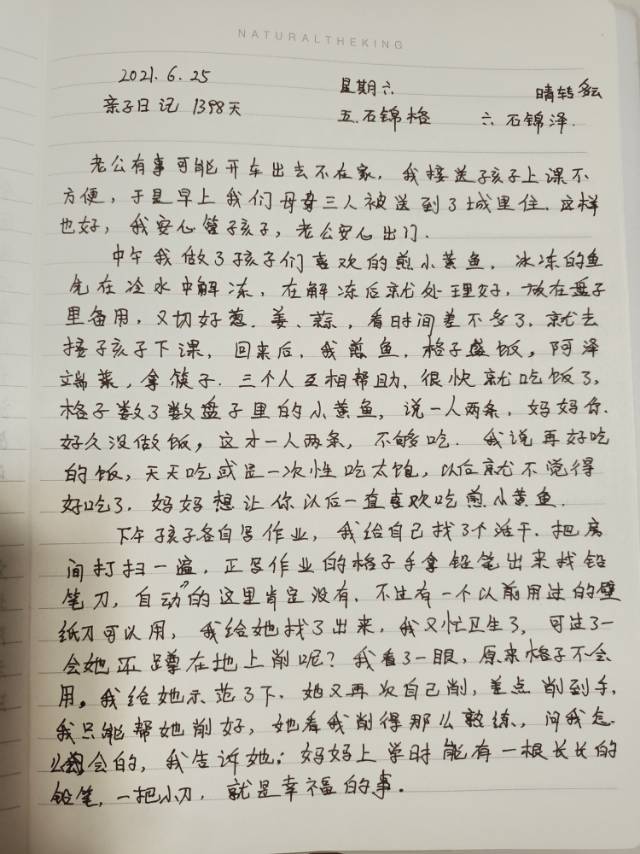 NATURALTHEKING
2021.6.25 星期六 晴转多云
亲子日记 1398天 五.石锦格 六 石锦泽.
老公有事可能开车出去不在家，我接送孩子上课不
方便，于是早上我们母子三人被送到了城里住.这样
也好，我安心管孩子，老公安心出门.
中午我做了孩子们喜欢的煎小黄鱼，冰冻的鱼
先在冷水中解冻，在解冻后就处理好，放在盘子
里备用，又切好葱、姜、蒜，看时间差不多了.就去
接子孩子下课，回来后，我煎鱼，格子盛饭，阿泽
端菜，拿筷子.三个人互相帮助，很快就吃饭了，
格子数了数盘子里的小黄鱼，说一人两条，妈妈你
好久没做饭，这才一人两条，不够吃.我说再好吃
的饭，天天吃或是一次性吃太饱，以后就不觉得
好吃了，妈妈想让你以后一直喜欢吃煎小黄鱼.
下午孩子各自写作业，我给自己找了个活干.把房
间打扫一遍，正写作业的格子手拿铅笔出来找铅
笔刀，"自动"的这里肯定没有.不过有一个以前用过的壁
纸刀可以用，我给她找了出来，我又忙卫生了，可过了一
会她还蹲在地上削呢？我看了一眼，原来格子不会
用。我给她示范了下.她又再次自己削，差点削到手，
我只能帮她削好，她看我削得那么熟练，问我怎
么会的，我告诉她：妈妈上学时能有一根长长的
铅笔，一把小刀，就是幸福的事。